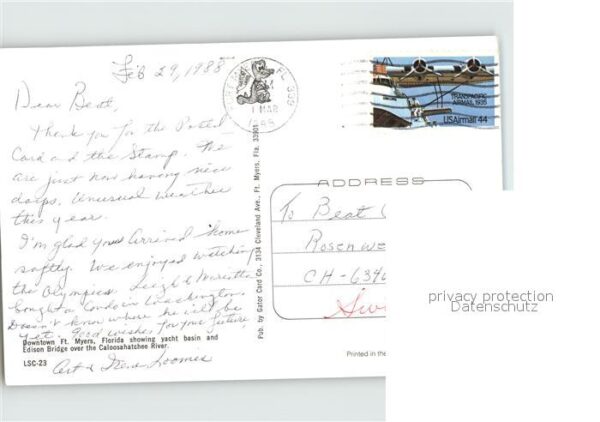 Feb 29, 1988
Dear Beat,
Thank you for the Postal
Card and the Stamp. We
are just now having nice
days. Unusual weather
this year.
I'm glad you arrived home
safely. We enjoyed watching
the Olympics. Leigh & Marietta
bought a Condo in Washington.
Doesn't know where he will be
yet. Good wishes for your future,
Art & Irene Loomes
Downtown Ft. Myers, Florida showing yacht basin and
Edison Bridge over the Caloosahatchee River.
LSC-23
Pub. by Gator Card Co., 3134 Cleveland Ave., Ft. Myers, Fla. 33901
FL 339
1 MAR
1988
TRANSPACIFIC
AIRMAIL 1935
USAirmail 44
ADDRESS
To Beat
Rosenwe
CH-6340
Swi
Printed in the
privacy protection
Datenschutz